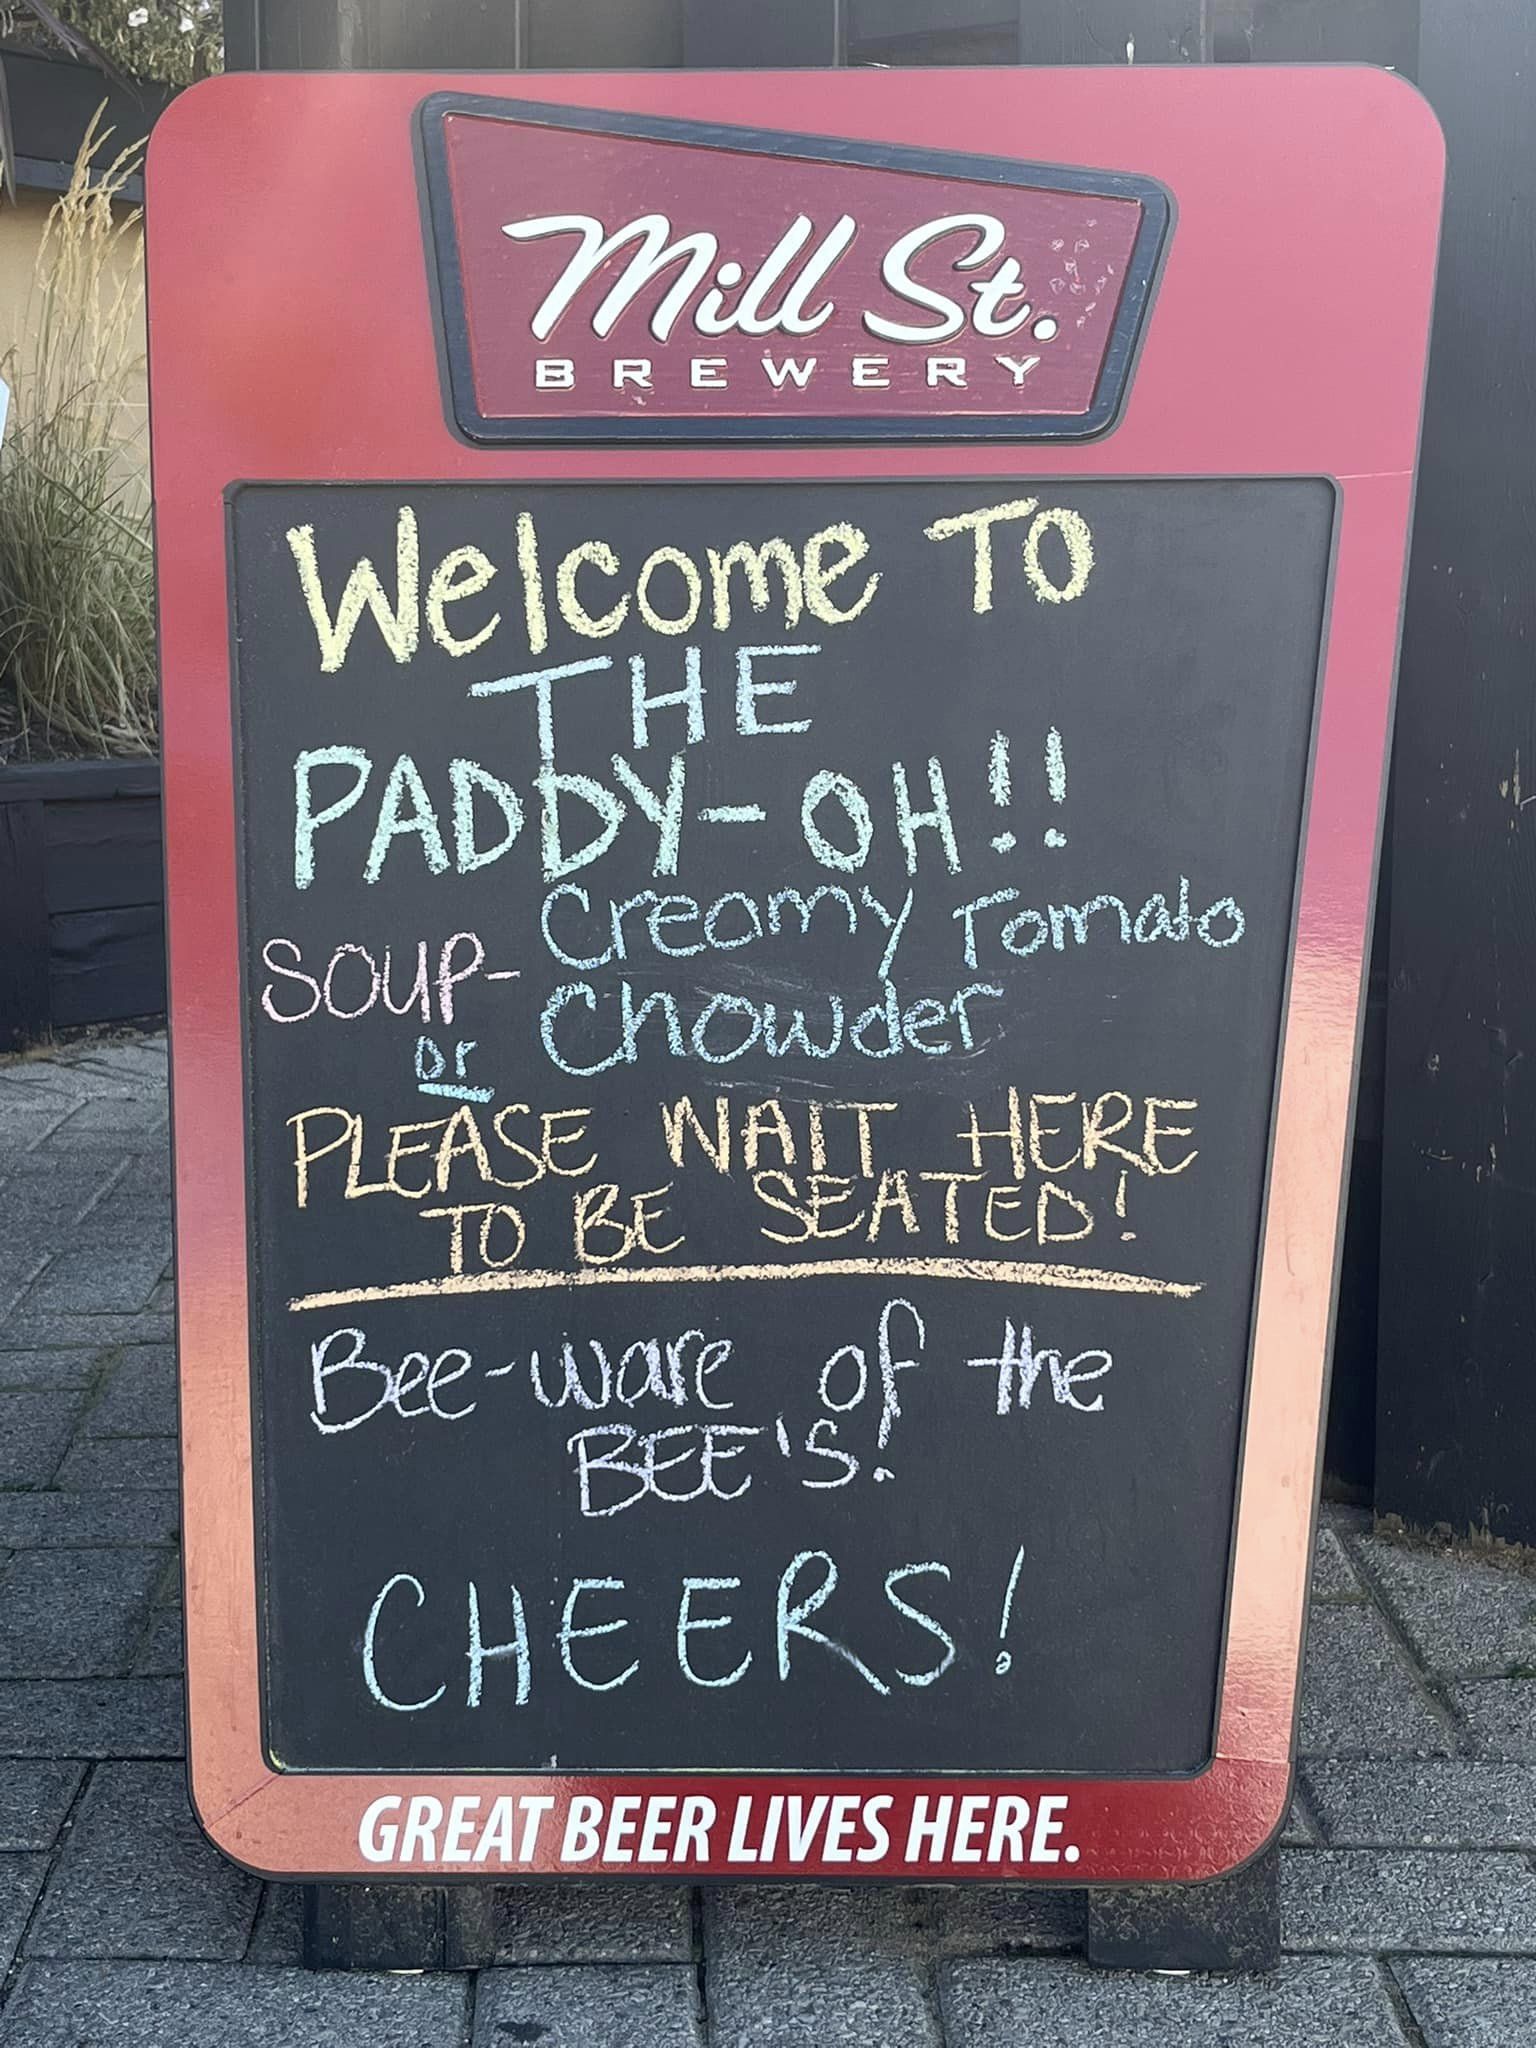 Mill St.
BREWERY
Welcome TO
THE
PADDY-OH!!
Creamy Tomato
SOUP-
or Chowder
PLEASE WAIT HERE
TO BE SEATED!
Bee-ware of the
BEE'S!
CHEERS!
GREAT BEER LIVES HERE.